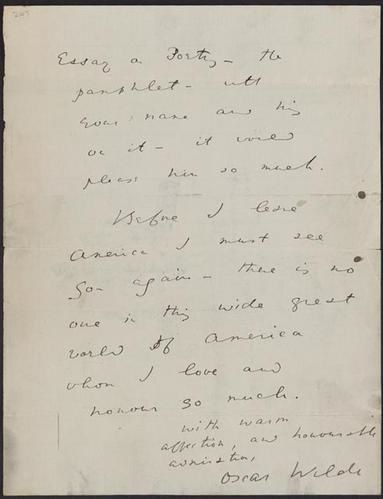 Essay on Poetry — the
pamphlet — with
your name and his
on it — it would
please him so much.
Before I leave
America I must see
you again — there is no
one in this wide great
world of America
whom I love and
honour so much.
With warm
affection, and honourable
admiration,
Oscar Wilde